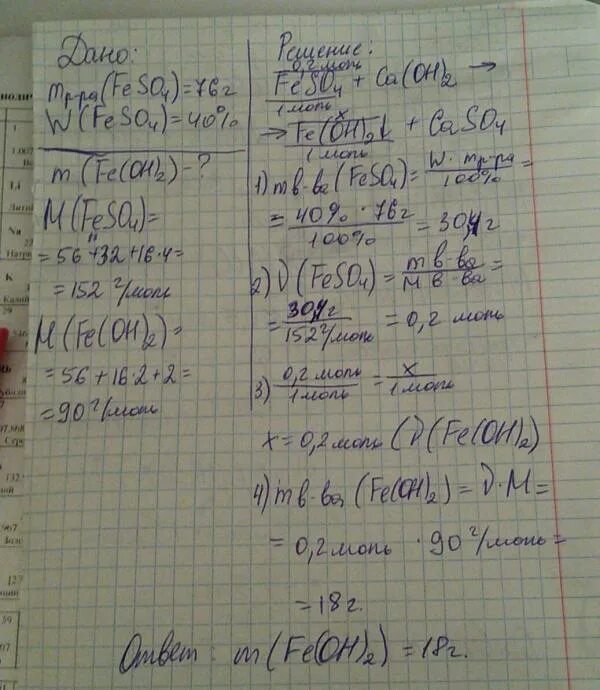 Дано:
mр-ра(FeSO₄)=76г
W(FeSO₄)=40%
m(Fe(OH)₂)-?
M(FeSO₄)=
=56+32+16·4=
=152 г/моль
M(Fe(OH)₂)=
=56+16·2+2=
=90 г/моль
Решение:
0,2моль
FeSO₄ + Ca(OH)₂ →
1моль
x
→ Fe(OH)₂↓ + CaSO₄
1моль
1) mв-ва(FeSO₄)= W·mр-ра / 100% =
= 40%·76г / 100% = 30,4г
2) ν(FeSO₄) = mв-ва / Mв-ва =
= 30,4г / 152г/моль = 0,2 моль
3) 0,2моль / 1моль = x / 1моль
x=0,2моль (ν(Fe(OH)₂)
4) mв-ва(Fe(OH)₂)=ν·M=
=0,2моль · 90г/моль=
=18г.
Ответ: m(Fe(OH)₂)=18г.